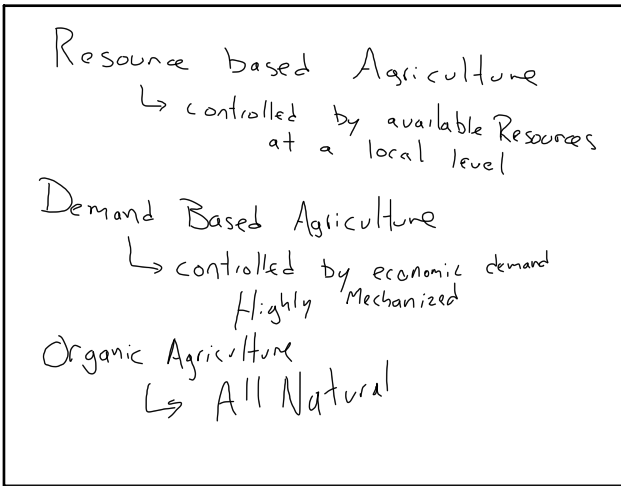 Resource based Agriculture
↳ controlled by available Resources
at a local level
Demand Based Agriculture
↳ controlled by economic demand
Highly Mechanized
Organic Agriculture
↳ All Natural